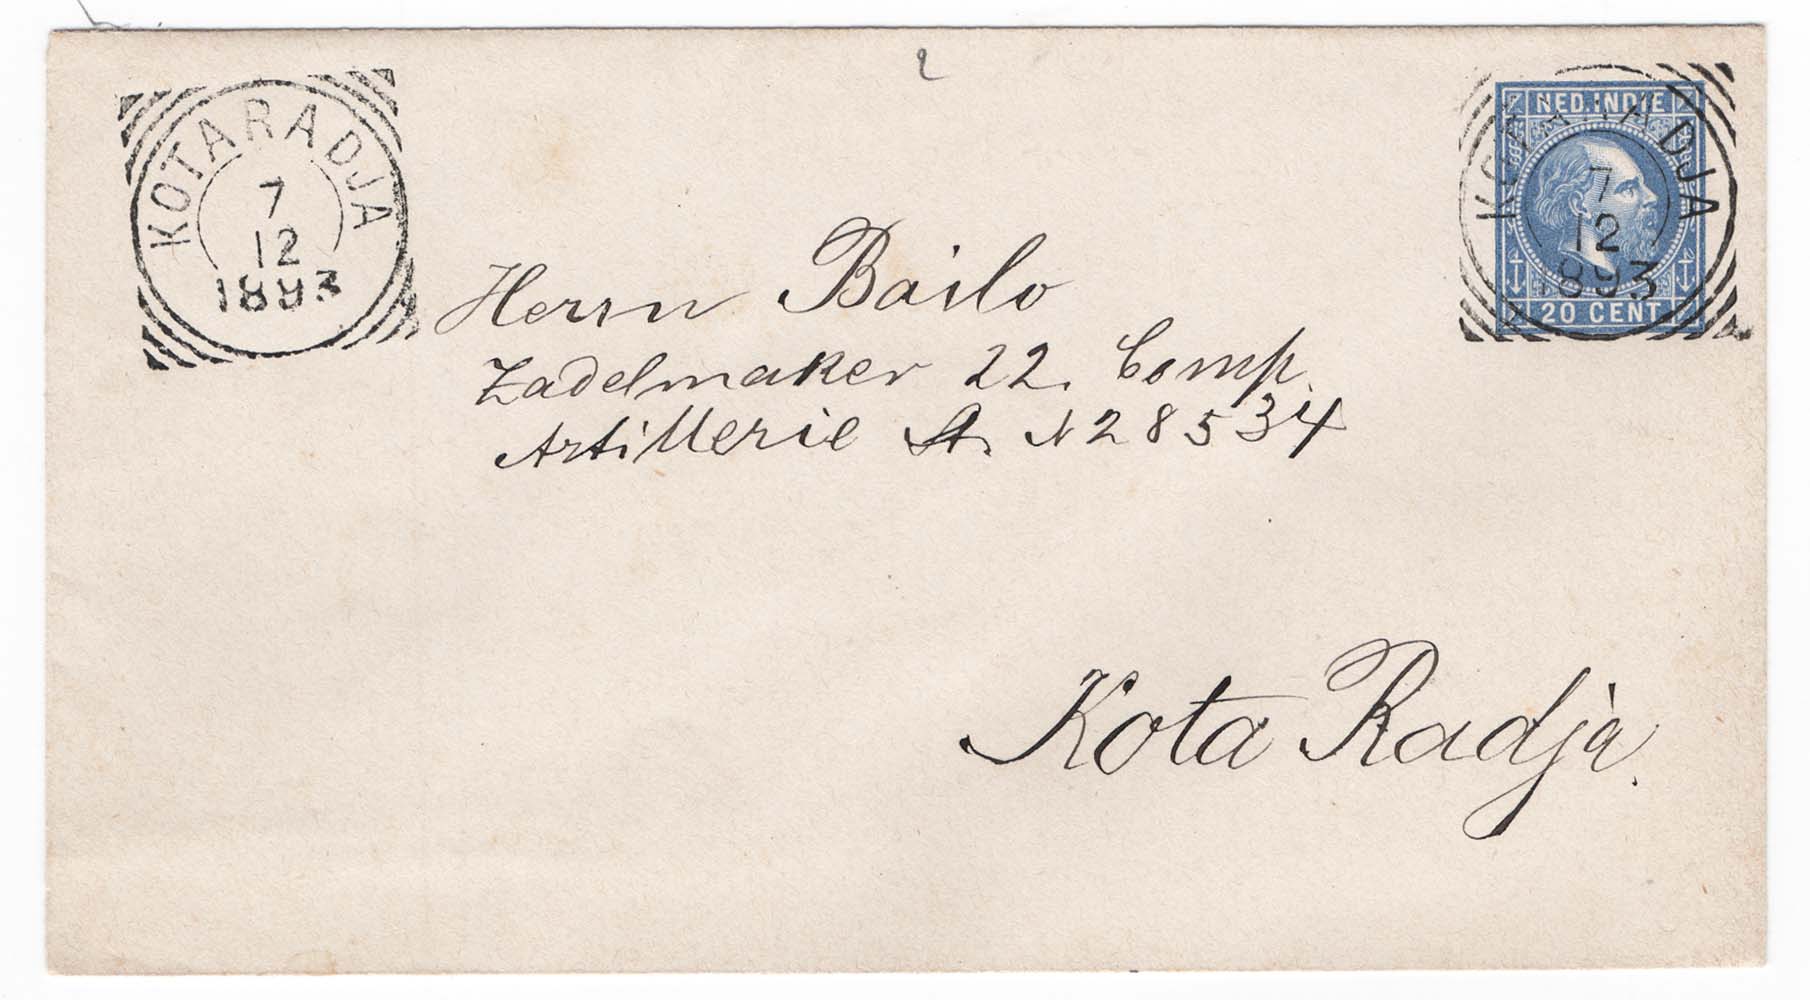 KOTARADJA
7
12
1893
NED. INDIE
20 CENT
KOTARADJA
7
12
1893
Herrn Bailo
Zadelmaker 22. Comp.
Artillerie A. N 28534
Kota Radja.